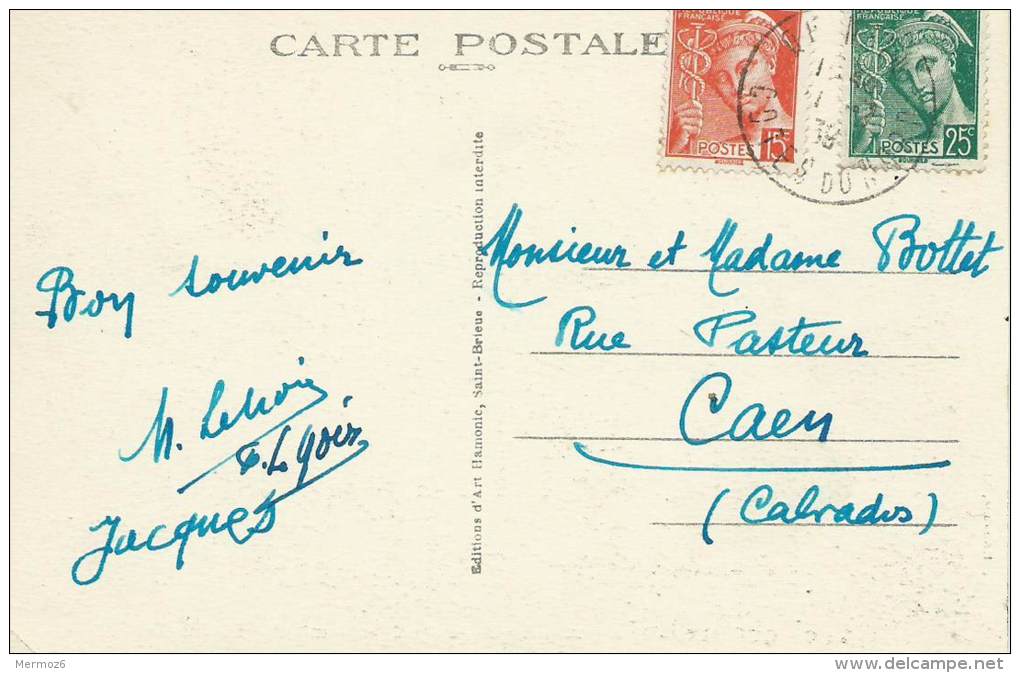 CARTE POSTALE
RÉPUBLIQUE
FRANÇAISE
15c
POSTES
RÉPUBLIQUE
FRANÇAISE
POSTES 25c
38
COTES DU NORD
Bon souvenir
M. Lenoir
Jacques
Editions d'Art Hamonic, Saint-Brieuc - Reproduction interdite
Monsieur et Madame Bottet
Rue Pasteur
Caen
(Calvados)
Mermoz6
www.delcampe.net